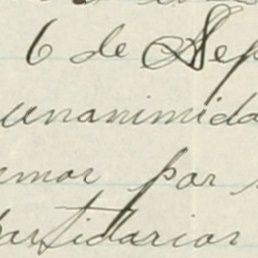 6 de Sep
unanimida
emos por
partidarios